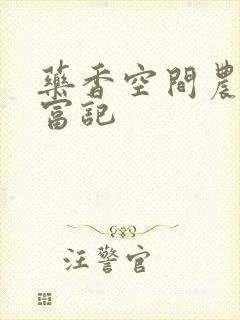 藥香空間農
富記
汪警官